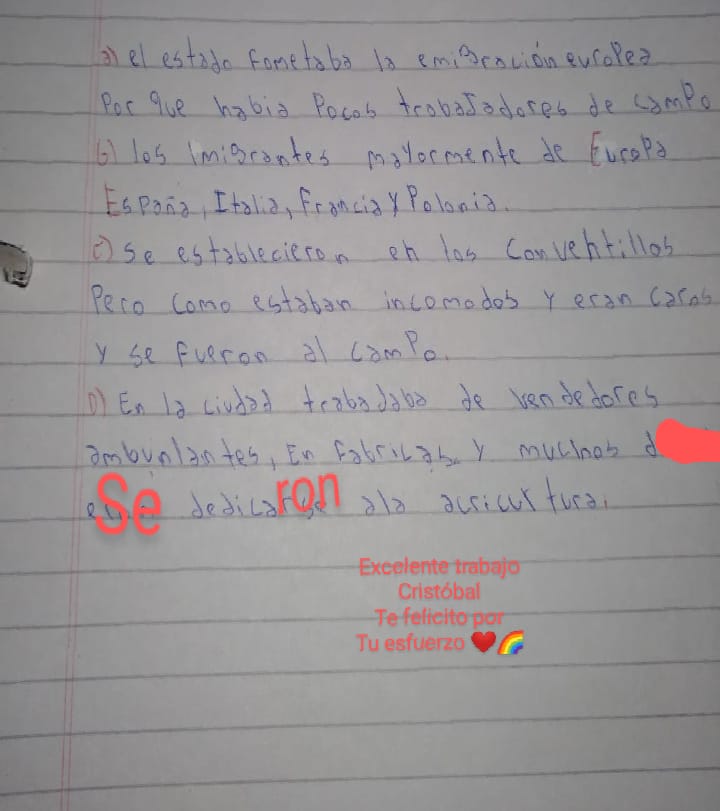 a) el estado fometaba la emigración europea
Por que habia Pocos trabajadores de campo
b) los imigrantes mayormente de Europa
España, Italia, Francia y Polonia.
c) Se establecieron en los Conventillos
Pero como estaban incomodos y eran caros
y se fueron al campo.
D) En la ciudad trabadaba de vendedores
ambunlantes, En fabricas. y muchos d
Se dedicaron ala acricurtura.
Excelente trabajo
Cristóbal
Te felicito por
Tu esfuerzo ❤️🌈